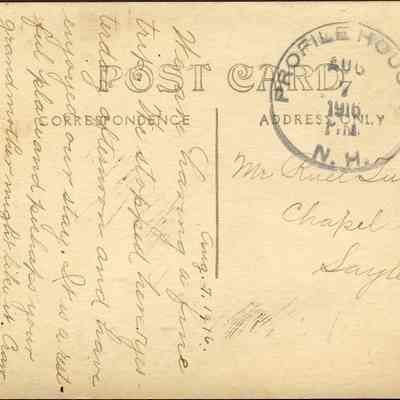 POST CARD
CORRESPONDENCE
ADDRESS ONLY
PROFILE HOUSE
AUG
7
1916
P.M.
N. H.
Mr
Chapel
Aug. 7, 1916.
We are having a fine
trip. We stopped here yes-
terday afternoon and have
enjoyed our stay. It is a rest-
ful place and perhaps your
grandmother might like it.